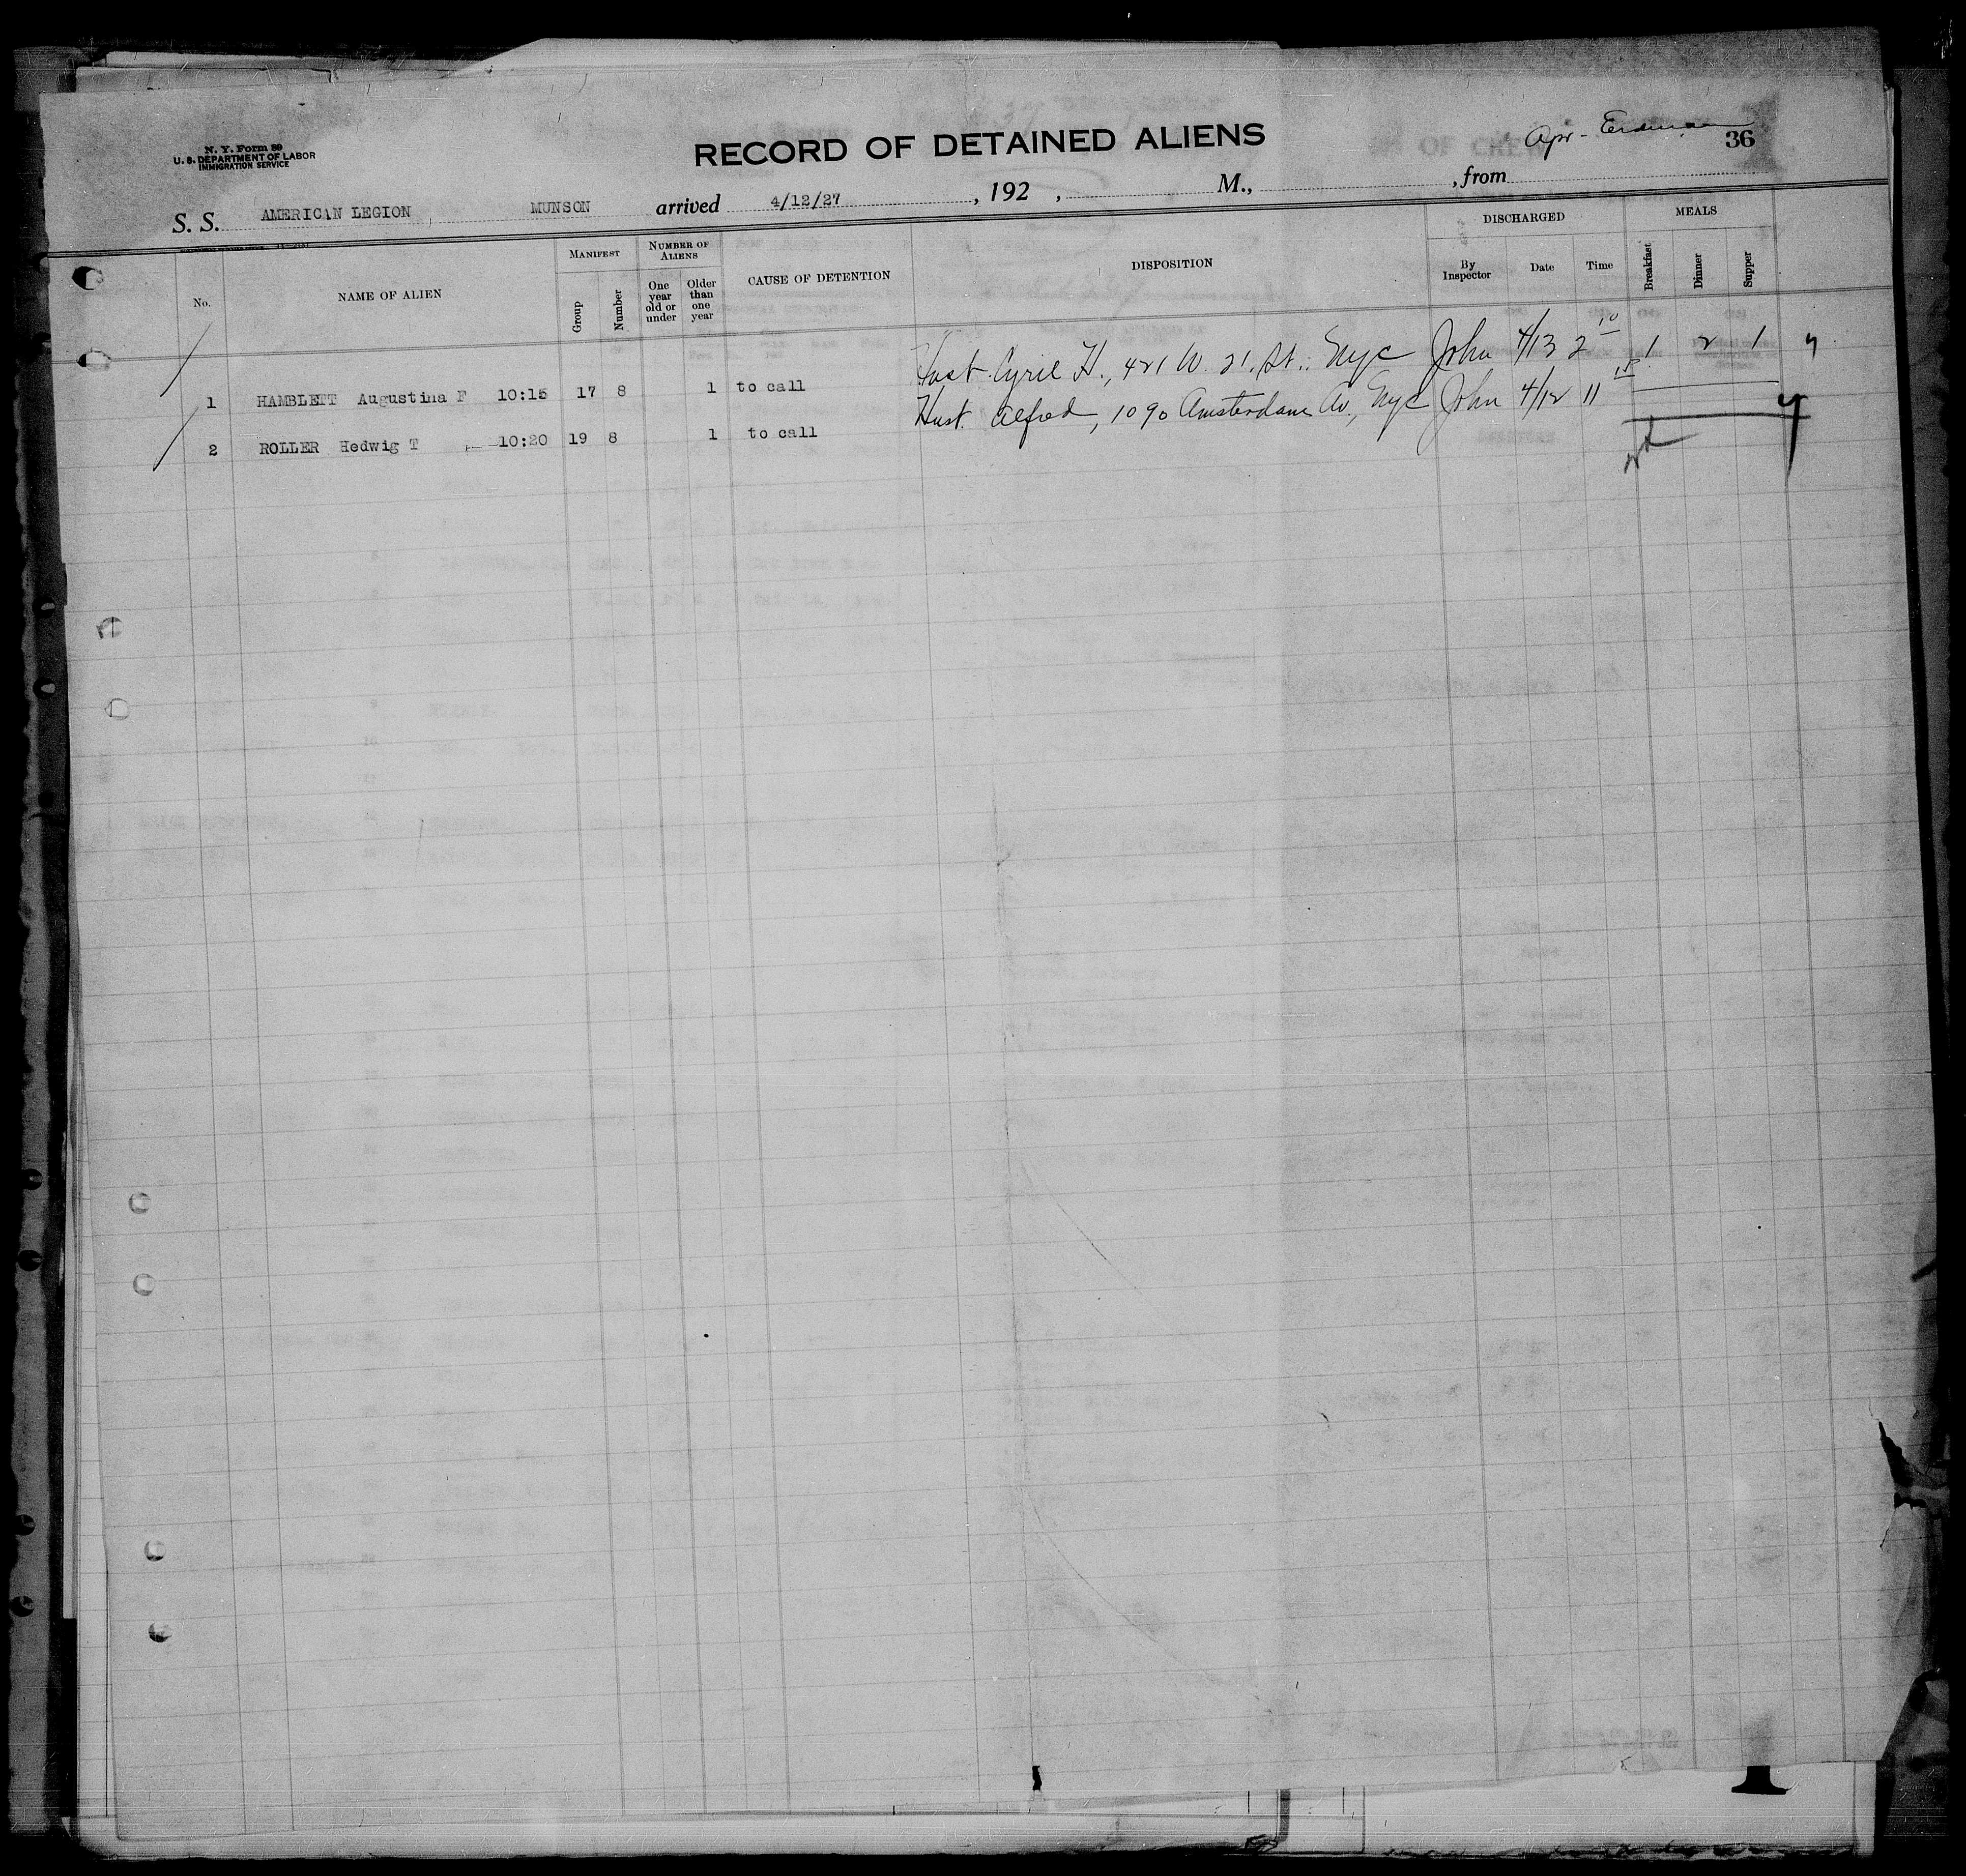 N. Y. Form 89
U. S. DEPARTMENT OF LABOR
IMMIGRATION SERVICE
RECORD OF DETAINED ALIENS
Apr - Erdman
36
S. S. AMERICAN LEGION, MUNSON arrived 4/12/27, 192 , M., , from
No. NAME OF ALIEN MANIFEST NUMBER OF ALIENS CAUSE OF DETENTION DISPOSITION DISCHARGED MEALS
Group Number One year old or under Older than one year By Inspector Date Time Breakfast Dinner Supper
1 HAMBLETT Augustina F 10:15 17 8 1 to call Hust. Cyril H., 421 W. 21. St. Nyc John 4/13 2 10 1 2 1 4
2 ROLLER Hedwig T 10:20 19 8 1 to call Hust. Alfred, 1090 Amsterdam Av, Nyc John 4/12 11 15
4